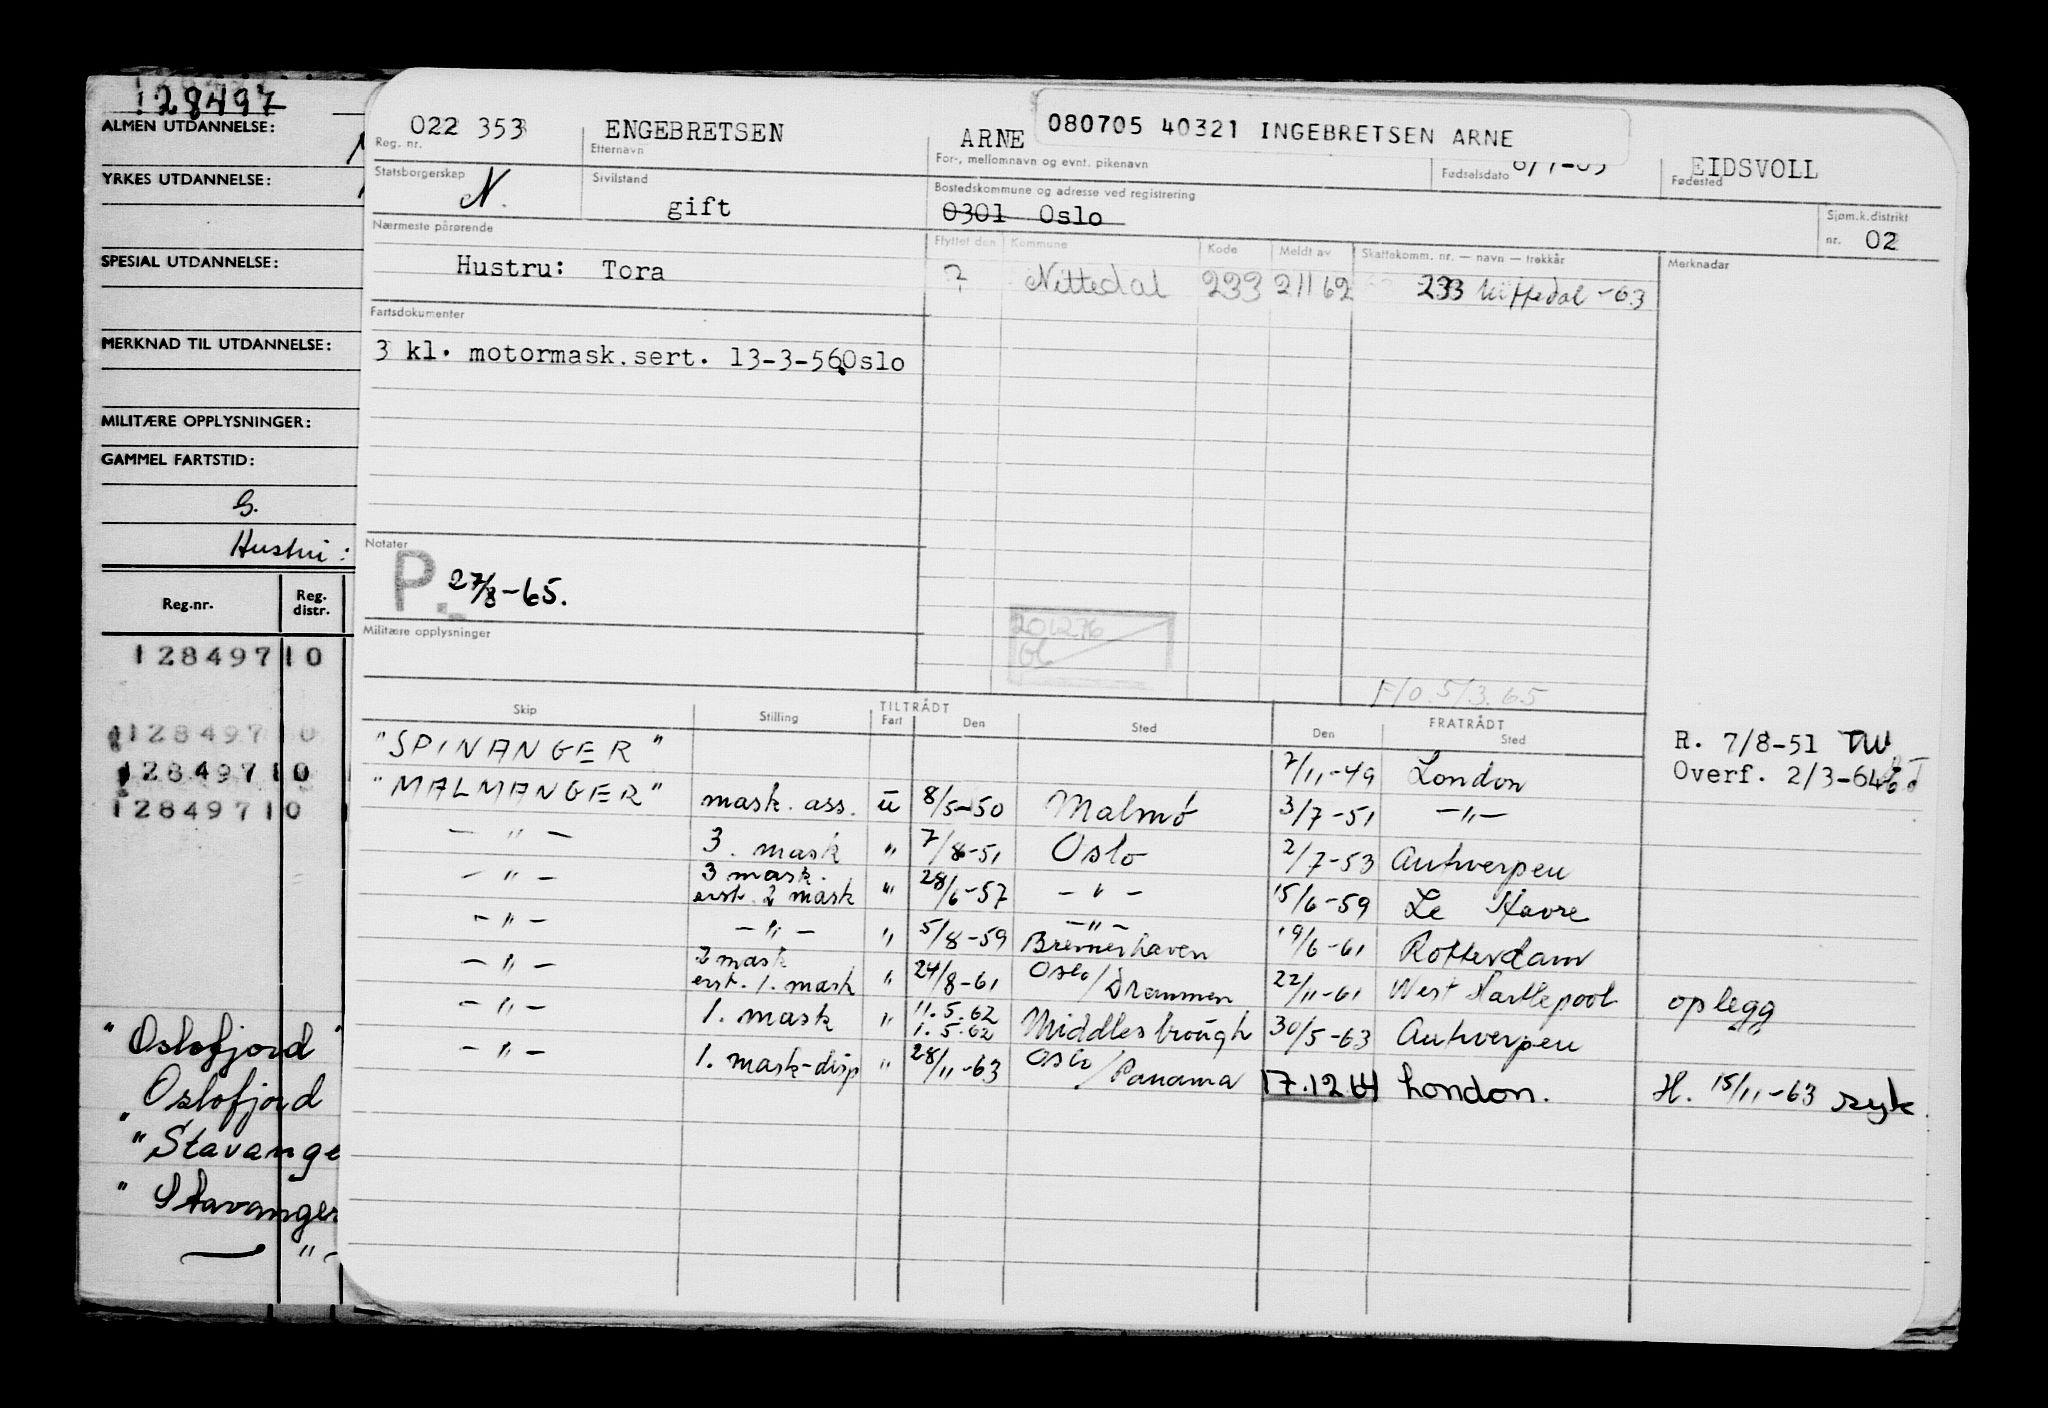 128497
ALMEN UTDANNELSE:
YRKES UTDANNELSE:
SPESIAL UTDANNELSE:
MERKNAD TIL UTDANNELSE:
MILITÆRE OPPLYSNINGER:
GAMMEL FARTSTID:
G.
Hustru :
Reg.nr. Reg. distr.
128497 10
128497 10
128497 10
128497 10
"Oslofjord"
Oslofjord
"Stavange
"Stavanger
— " —
022 353 ENGEBRETSEN ARNE 080705 40321 INGEBRETSEN ARNE EIDSVOLL
Reg. nr. Etternavn For-, mellomnavn og evnt. pikenavn Fødselsdato Fødested
Statsborgerskap N. Sivilstand gift Bostedskommune og adresse ved registrering 0301 Oslo Sjøm.k.distrikt nr. 02
Nærmeste pårørende Flyttet den Kommune Kode Meldt av Skattekomm. nr. — navn — trekkår Merknader
Hustru: Tora ? Nittedal 233 21162 233 Nittedal -63
Fartsdokumenter
3 kl. motormask.sert. 13-3-56 Oslo
Notater
P. 27/8-65.
201276
Militære opplysninger
F/O. 5/3.65
Skip Stilling TILTRÅDT Fart Den Sted FRATRÅDT Den Sted
"SPINANGER" 7/11-49 London R. 7/8-51 TW
"MALMANGER" mask. ass. u 8/5-50 Malmö 3/7-51 — " — Overf. 2/3-64
— " — 3. mask " 7/8-51 Oslo 2/7-53 Antwerpen
— " — 3 mask. erst. 2 mask " 28/6-57 — " — 15/6-59 Le Havre
— " — — " — " 5/8-59 — " — Bremerhaven 19/6-61 Rotterdam
— " — 2 mask erst. 1. mask " 24/8-61 Oslo/Drammen 22/11-61 West Hartlepool opplegg
— " — 1. mask " 11.5.62 1.5.62 Middlesbrough 30/5-63 Antwerpen
— " — 1. mask-disp " 28/11-63 Oslo/Panama 17.12.64 London. H. 15/11-63 syk.